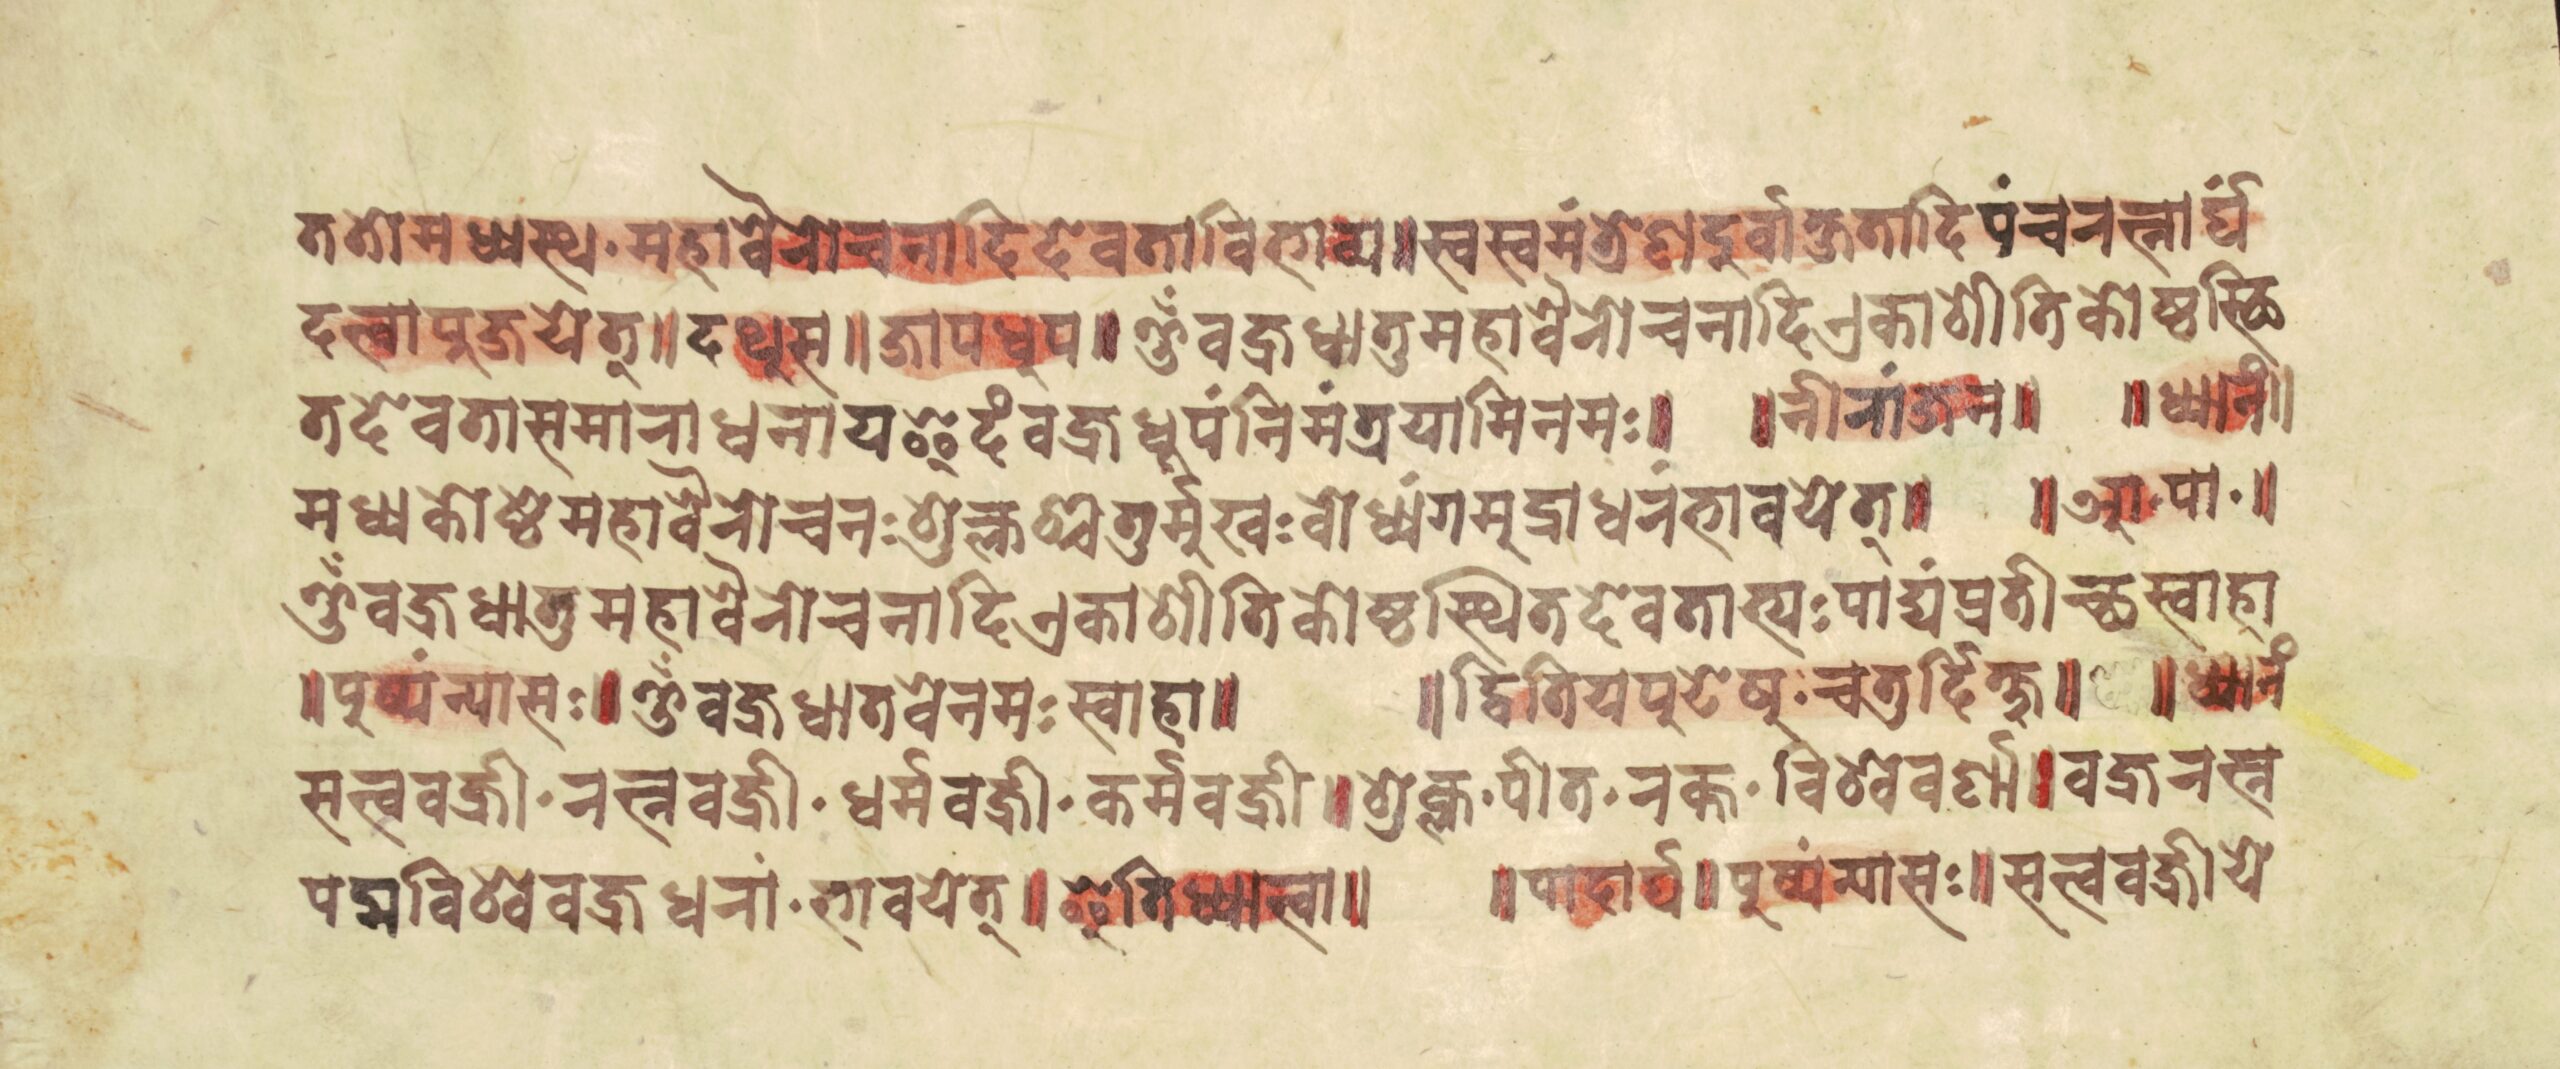 ततो मध्यस्थ · महावैरोचनादिदेवताविभाव्य॥ स्वस्वमंत्रेण दुर्वाक्षतादि पंचरत्नार्घं
दत्त्वा पुजयेत्॥ दथुस॥ जापधुप॥ ॐ वज्रधातुमहावैरोचनादिएकाशीतिकोष्ठस्थि
तदेवतासमाराधनाय इदं वज्रधुपं निमंत्रयामि नमः॥ ॥नीरांजन॥ ॥ध्यानं॥
मध्यकोष्ठे महावैरोचनः शुक्लश्चतुर्मुखः बोध्यंगमुद्राधरं भावयेत्॥ ॥आ · पा ·॥
ॐ वज्रधातुमहावैरोचनादिएकाशीतिकोष्ठस्थितदेवताभ्यः पाद्यं प्रतीच्छ स्वाहा
॥पुष्पंन्यासः॥ ॐ वज्रधातवे नमः स्वाहा॥ ॥द्वितियपुटेषु · चतुर्दिक्षु॥ ॥ध्यानं
सत्त्ववज्री · रत्नवज्री · धर्मवज्री · कर्मवज्री॥ शुक्ल · पीत · रक्त · विश्ववर्णा॥ वज्ररत्न
पद्मविश्ववज्रधरां · भावयेत्॥ इति ध्यात्वा॥ ॥पादार्घ॥ पुष्पंन्यासः॥ सत्त्ववज्रीये